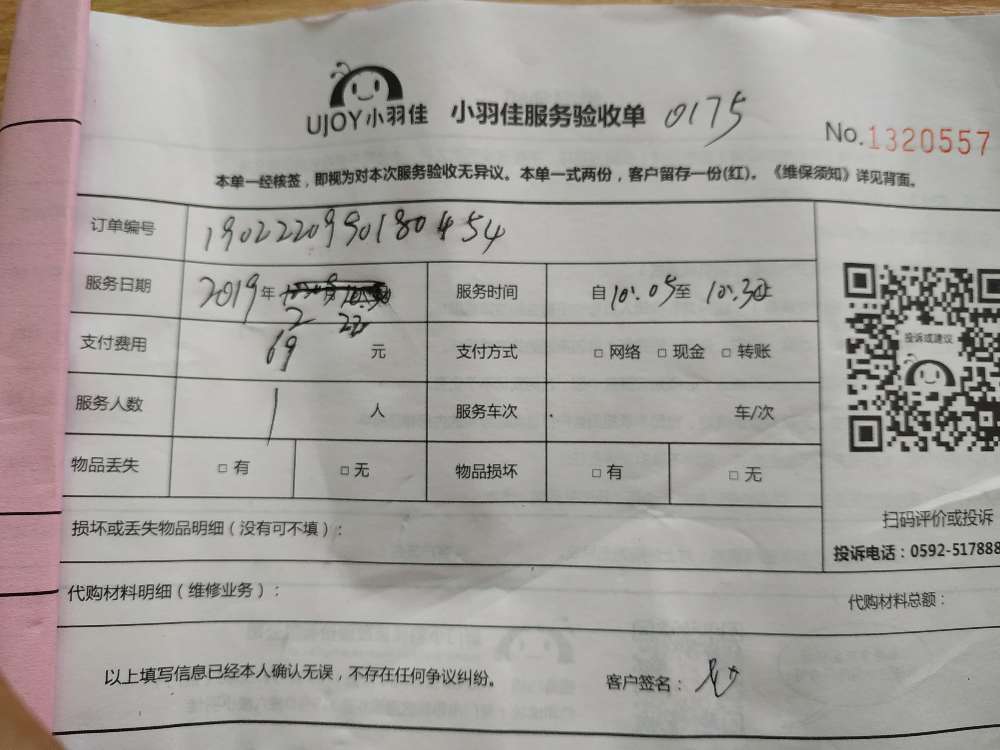 UJOY小羽佳 小羽佳服务验收单 0175
No.1320557
本单一经核签，即视为对本次服务验收无异议。本单一式两份，客户留存一份(红)。《维保须知》详见背面。
订单编号 1902220990180454
服务日期 2019年 2 22 服务时间 自10:05至10:30
支付费用 69 元 支付方式 □ 网络 □ 现金 □ 转账
投诉或建议
服务人数 1 人 服务车次 车/次
物品丢失 □ 有 □ 无 物品损坏 □ 有 □ 无
扫码评价或投诉
损坏或丢失物品明细（没有可不填）：
投诉电话：0592-517888
代购材料明细（维修业务）： 代购材料总额：
以上填写信息已经本人确认无误，不存在任何争议纠纷。 客户签名：